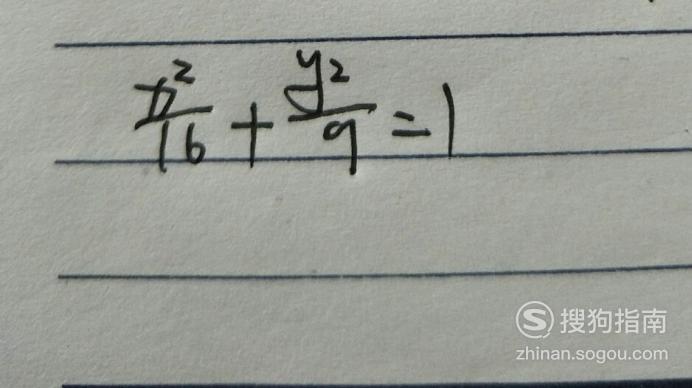 x²/16 + y²/9 = 1
搜狗指南
zhinan.sogou.com